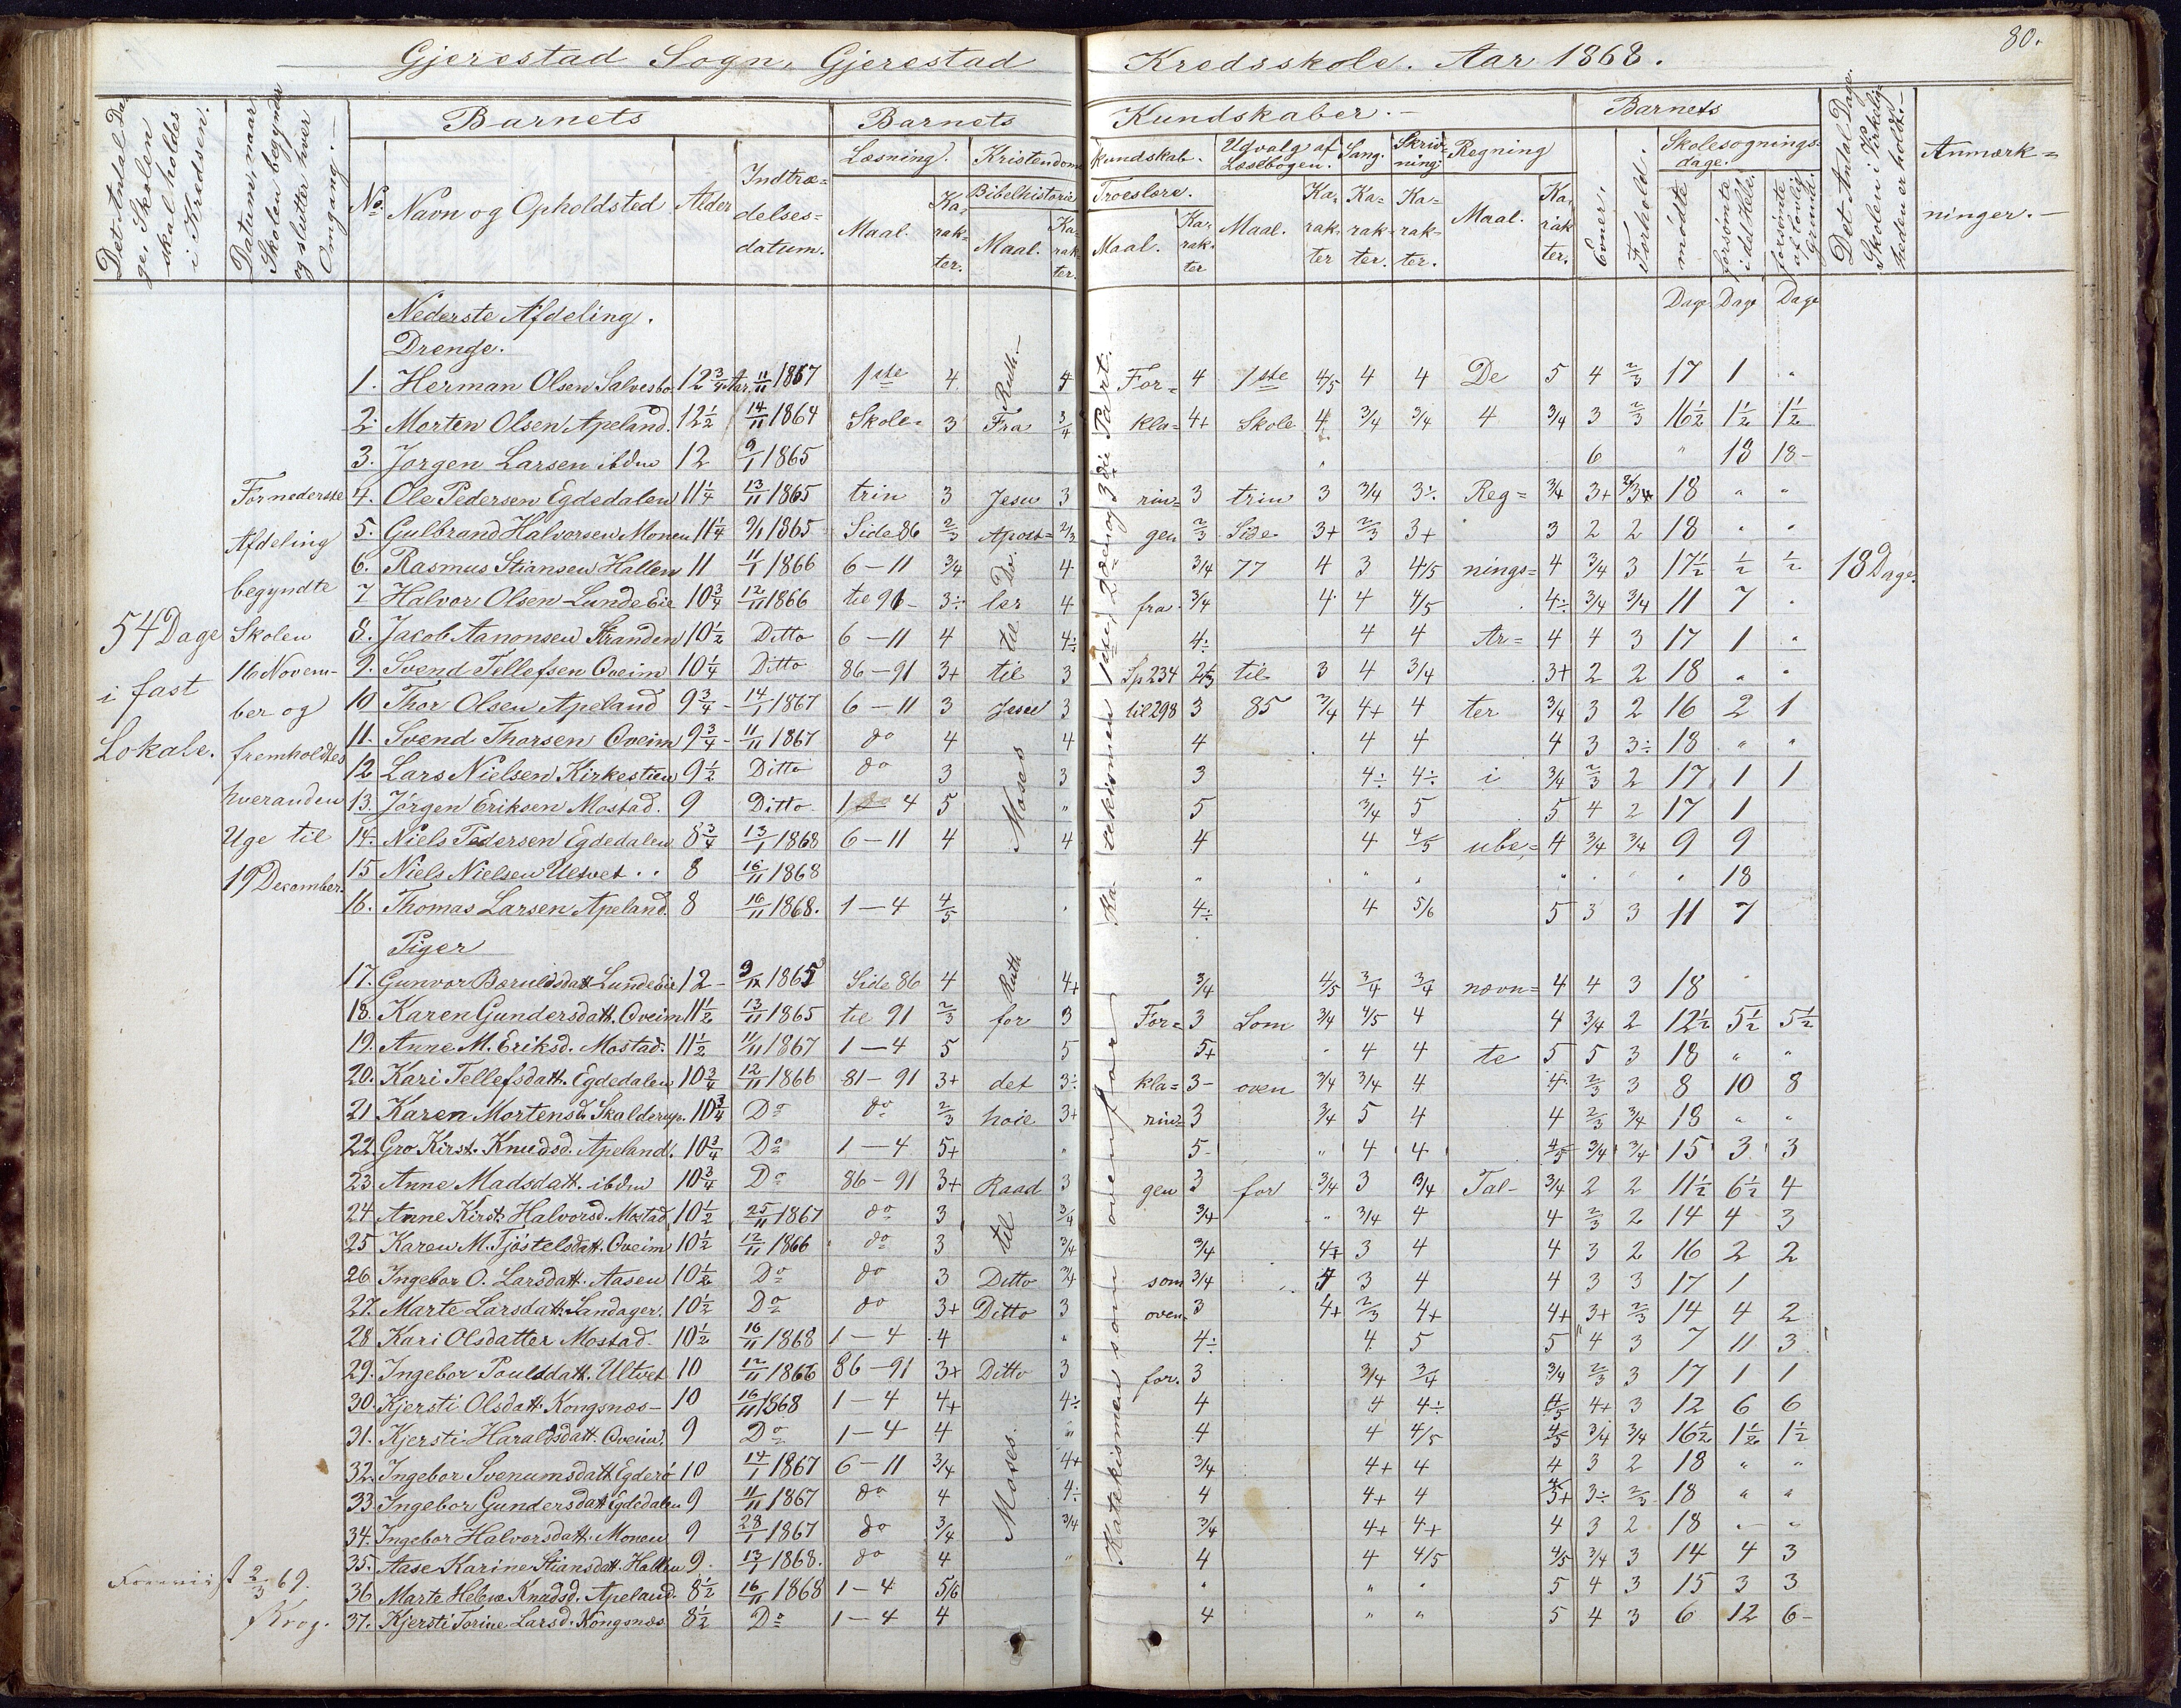 80.
Gjerestad Sogn, Gjerestad Kredsskole. Aar 1868.
Det Antal Dage, Skolen skal holdes i Kredsen.
Datum, naar Skolen begynder og slutter hver Omgang.
Barnets
Barnets Kundskaber.
Barnets
Det Antal Dage Skolen i Virkeligheden er holdt.
Anmærkninger.
No
Navn og Opholdsted
Alder
Indtrædelsesdatum.
Læsning.
Kristendomskundskab.
Udvalg af Læsebogen.
Sang.
Skrivning
Regning
Evner.
Forhold.
Skolesøgningsdage.
Bibelhistorie
Troeslære.
Maal.
Karakter.
Maal.
Karakter.
Maal.
Karakter
Maal.
Karakter
Karakter.
Karakter.
Maal.
Karakter.
mødte
forsømte i det Hele.
forsømte af lovlig Grund.
Dage Dage Dage
Nederste Afdeling.
Drenge.
1. Herman Olsen Salvesbo 12 3/4 Aar 11/11 1867 1ste 4 4 For= 4 1ste 4/5 4 4 De 5 4 2/3 17 1 "
2. Morten Olsen Apeland. 12 1/2 14/11 1864 Skole= 3 Fra 3/4 kla= 4+ Skole 4 3/4 3/4 4 3/4 3 2/3 16 1/2 1 1/2 1 1/2
3. Jørgen Larsen ibdm 12 9/1 1865 6 " 18 18
4. Ole Pedersen Egdedalen 11 1/4 13/11 1865 trin 3 Jesu 3 rin= 3 trin 3 3/4 3÷ Reg= 3/4 3+ 18 " "
5. Gulbrand Halvorsen Monen 11 1/4 9/1 1865 Side 86 2/3 Apost= 2/3 gen 2/3 Side 3+ 2/3 3+ 3 2 2 18 " "
6. Rasmus Stiansen Hallen 11 11/1 1866 6-11 3/4 Do 4 3/4 77 4 3 4/5 nings= 4 3/4 3 17 1/2 1/2 1/2
7 Halvor Olsen Lunde Eie 10 3/4 12/11 1866 til 91 3÷ ler 4 fra 3/4 4 4 4/5 4÷ 3/4 3/4 11 7
8. Jacob Aanonsen Stranden 10 1/2 Ditto 6-11 4 til 4÷ 4÷ 4 4 Ar= 4 4 3 17 1 "
9. Svend Tellefsen Oveim 10 1/4 Ditto 86-91 3+ til 3 Sp 234 til 3 4 3/4 3+ 2 2 18 " "
10 Thor Olsen Apeland 9 3/4 14/1 1867 6-11 3 Jesu 3 til 298 3 85 3/4 4+ 4 ter 3/4 3 2 16 2 1
11. Svend Thorsen Oveim 9 3/4 11/11 1867 do 4 4 4 4 4 4 3 3÷ 18 " "
12 Lars Nielsen Kirkestien 9 1/2 Ditto do 3 3 3 4÷ 4÷ i 3/4 2/3 2 17 1 1
13. Jörgen Eriksen Mostad. 9 Ditto 1-4 5 " 5 3/4 5 5 4 2 17 1
14. Niels Pedersen Egdedalen 8 3/4 13/1 1868 6-11 4 4 4 4 4/5 ube= 4 3/4 3/4 9 9
15 Niels Nielsen Ultvet 8 16/11 1868 18
16. Thomas Larsen Apeland. 8 16/11 1868. 1-4 4/5 4÷ 4 5/6 5 3 3 11 7
Piger
17. Gunvor Beruldsdatt Lunde Eie 12 1865 Side 86 4 4+ 3/4 4/5 3/4 3/4 nævn= 4 4 3 18
18. Karen Gundersdatt. Oveim 11 1/2 13/11 1865 til 91 2/3 for 3 For= 3 Som 3/4 4/5 4 4 3/4 2 12 1/2 5 1/2 5 1/2
19. Anne M. Eriksd. Mostad. 11 1/2 11/11 1867 1-4 5 5 5+ 4 4 te 5 5 3 18 " "
20. Kari Tellefsdatt. Egdedalen 10 3/4 12/11 1866 81-91 3+ det 3÷ kla= 3- oven 3/4 3/4 4 4 2/3 3 8 10 8
21 Karen Mortensd. Skalderup. 10 3/4 Do do 2/3 hoie 3+ rin= 3 3/4 5 4 4 2/3 3/4 18 " "
22. Gro Kirst. Knudsd. Apeland. 10 3/4 Do 1-4 5+ " 5- " 4 4 4/5 3/4 3/4 15 3 3
23 Anne Madsdatt. ibdm 10 3/4 Do 86-91 3+ Raad 3 gen 3 for 3/4 3 3/4 Tal- 3/4 2 2 11 1/2 6 1/2 4
24 Anne Kirst. Halvorsd. Mostad 10 1/2 25/11 1867 do 3 3/4 3/4 " 3/4 4 4 2/3 2 14 4 3
25 Karen M. Tjöstelsdatt. Oveim 10 1/2 12/11 1866 do 3 til 3/4 3/4 3 4 4 3 2 16 2 2
26 Ingebor O. Larsdatt. Aasen 10 1/2 Do do 3 Ditto 3/4 som 3/4 3 4 4 3 3 17 1
27. Marte Larsdatt. Landager. 10 1/2 Do do 3+ Ditto 3 oven 3 4+ 2/3 4+ 4+ 3+ 2/3 14 4 2
28 Kari Olsdatter Mostad. 10 1/2 16/11 1868 1-4 4 " 4÷ 4 5 5 4 3 7 11 3
29. Ingebor Poulsdatt. Ultvet 10 12/11 1866 86-91 3+ Ditto 3 for. 3 3/4 3/4 3/4 2/3 3 17 1 1
30. Kjersti Olsdatt. Kongsnæs 10 16/11 1868 1-4 4+ 4÷ 4 4 4÷ 4/5 4+ 3 12 6 6
31. Kjersti Haraldsdatt. Oveim. 9 Do 1-4 4 " 4 4 4/5 4/5 3/4 3/4 16 1/2 1 1/2 1 1/2
32. Ingebor Svenumsdatt Egderö 10 14/1 1867 6-11 3/4 4+ 3/4 4+ 4 4 3 2 18 " "
33. Ingebor Gundersdatt Egdedalen 9 11/11 1867 do 4 4÷ 4 4+ 4 3÷ 2/3 18 " "
34. Ingebor Halvorsdatt. Monen 9 28/1 1867 do 3/4 3/4 3/4 4+ 4+ 4 3 2 18 " "
35. Aase Karine Stiansdatt. Hallen 9. 13/1 1868. do 4 " 4 4 4/5 4/5 3/4 3 14 4 3
36 Marte Helene Knudsd. Apeland. 8 1/2 16/11 1868 1-4 5/6 " " " 5 4 3 15 3 3
37. Kjersti Torine Larsd. Kongsnæs 8 1/2 Do 1-4 4 4 " " 5 4 3 6 12 6
54 Dage
i fast
Lokale.
For nederste
Afdeling
begyndte
Skolen
16 Novem-
ber og
fremholdtes
hveranden
Uge til
19 December.
Ruth.
Moses
Ruth
til
Moses.
Katekismen 1ste, 2den og 3die Part.
Katekismen som ovenfor
18 Dage.
Foreviist 2/3 69.
Krog.